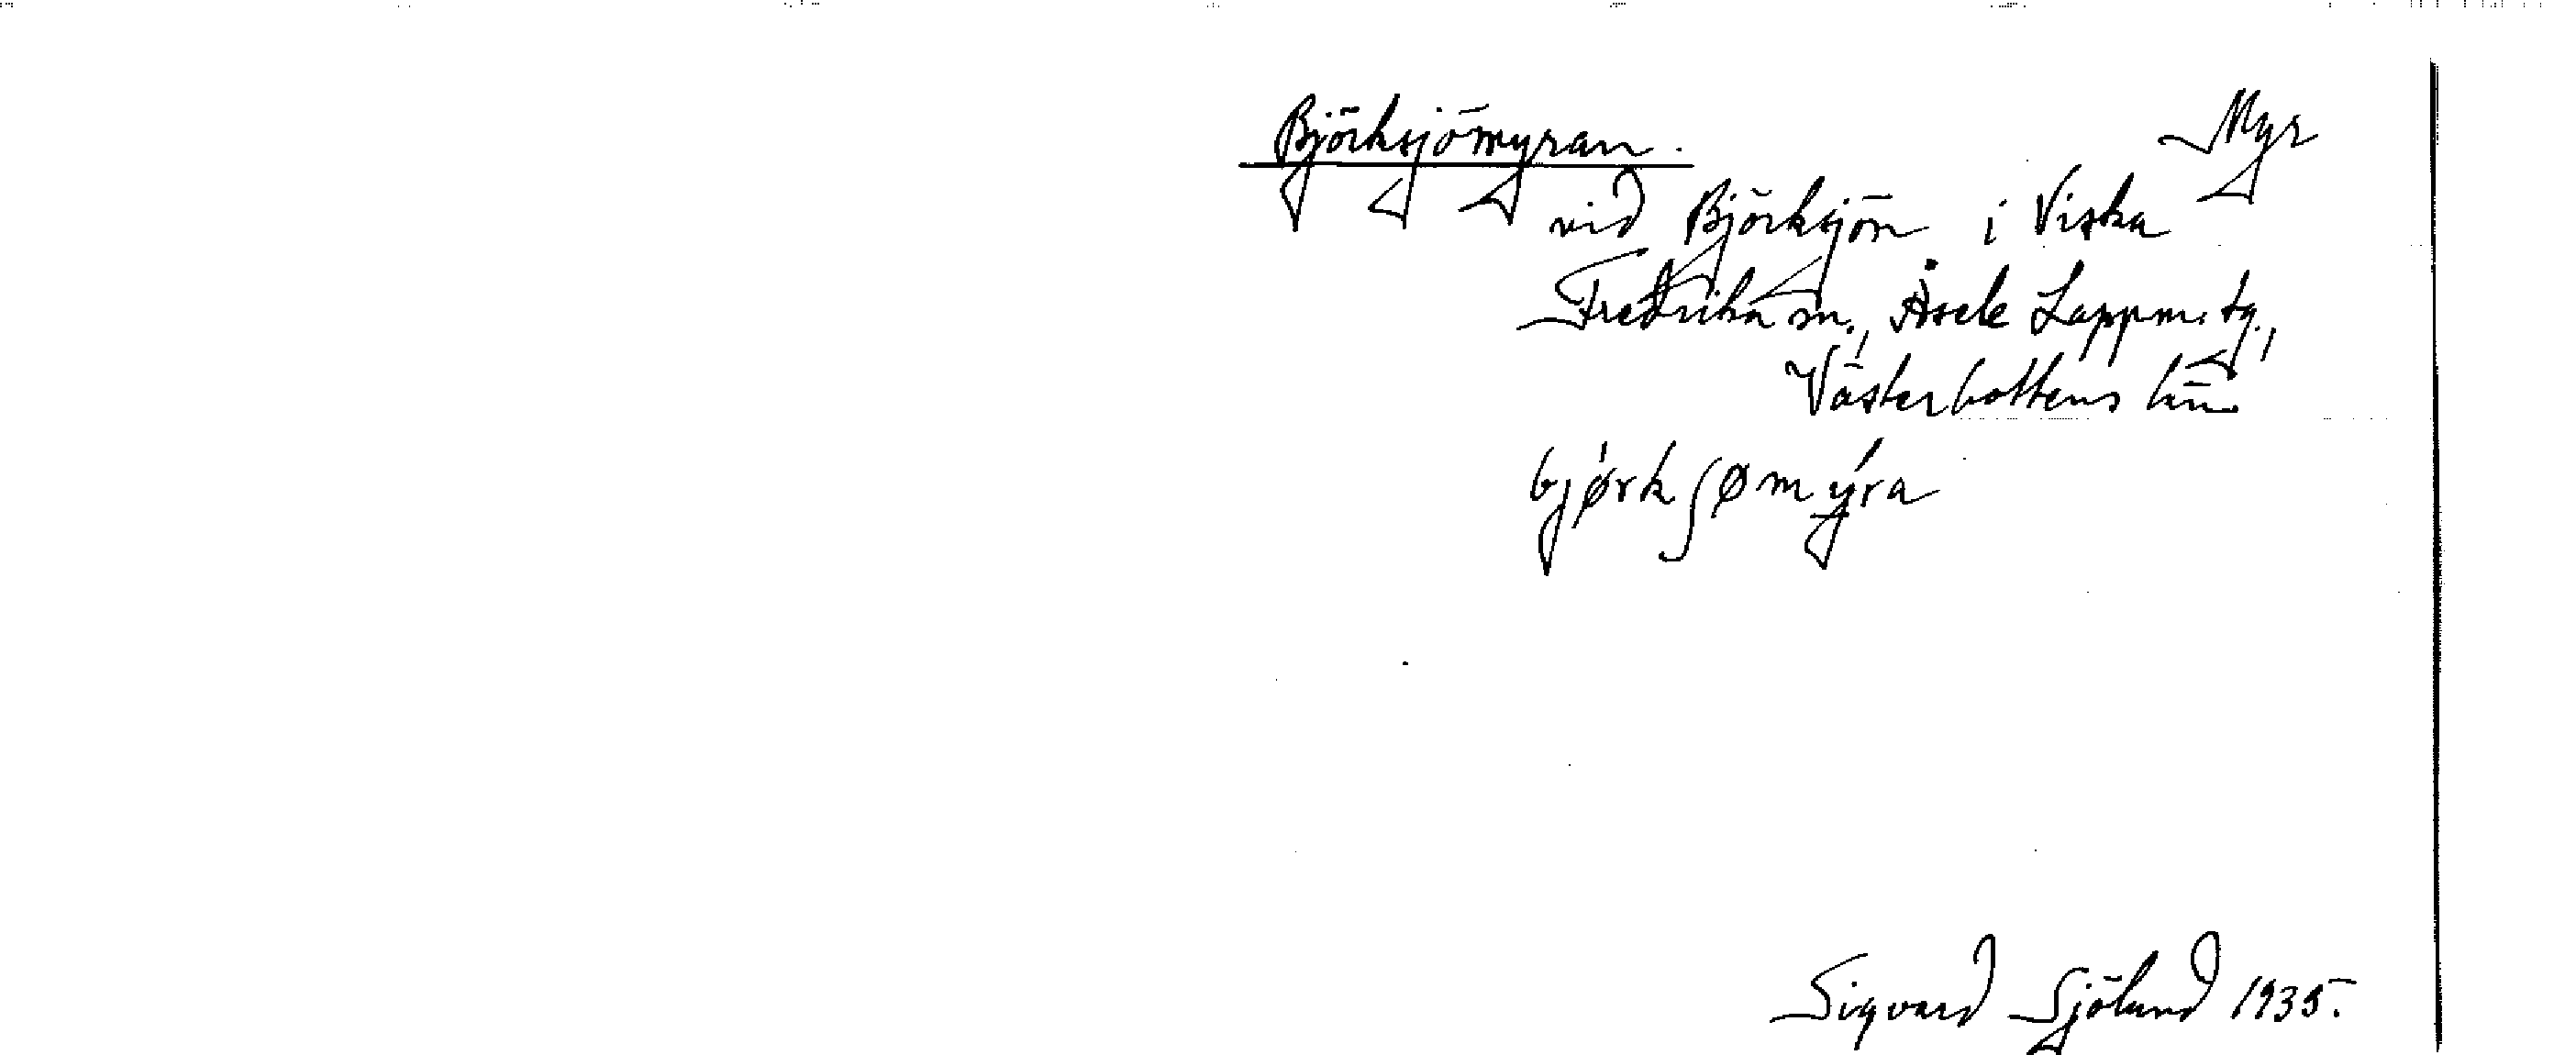 Björksjömyran. Myr
vid Björksjön i Viska
Fredrika sn., Åsele Lappm. tg.,
Västerbottens län.
bjørkʃømý̲ra
Sigvard Sjölund 1935.